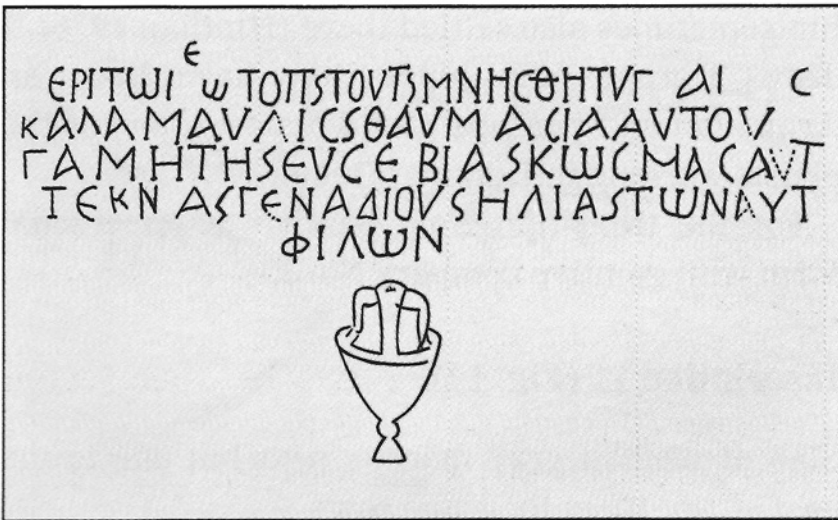 ΕΡΙΤΩΙ Ε Ω ΤΟΠSΤΟVΤSΜΝΗCΘΗΤVΓ ΑΙ C
ΚΑΛΑΜΑVΛΙCSΘΑVΜ ΑCΙΑΑVΤΟV
ΓΑΜΗΤΗSΕVCΕ ΒΙΑSΚΩCΜΑCΑVΤ
ΤΕΚΝ ΑSΓΕΝΑΔΙΟVSΗΛΙΑSΤΩΝΑΥΤ
ΦΙΛΩΝ